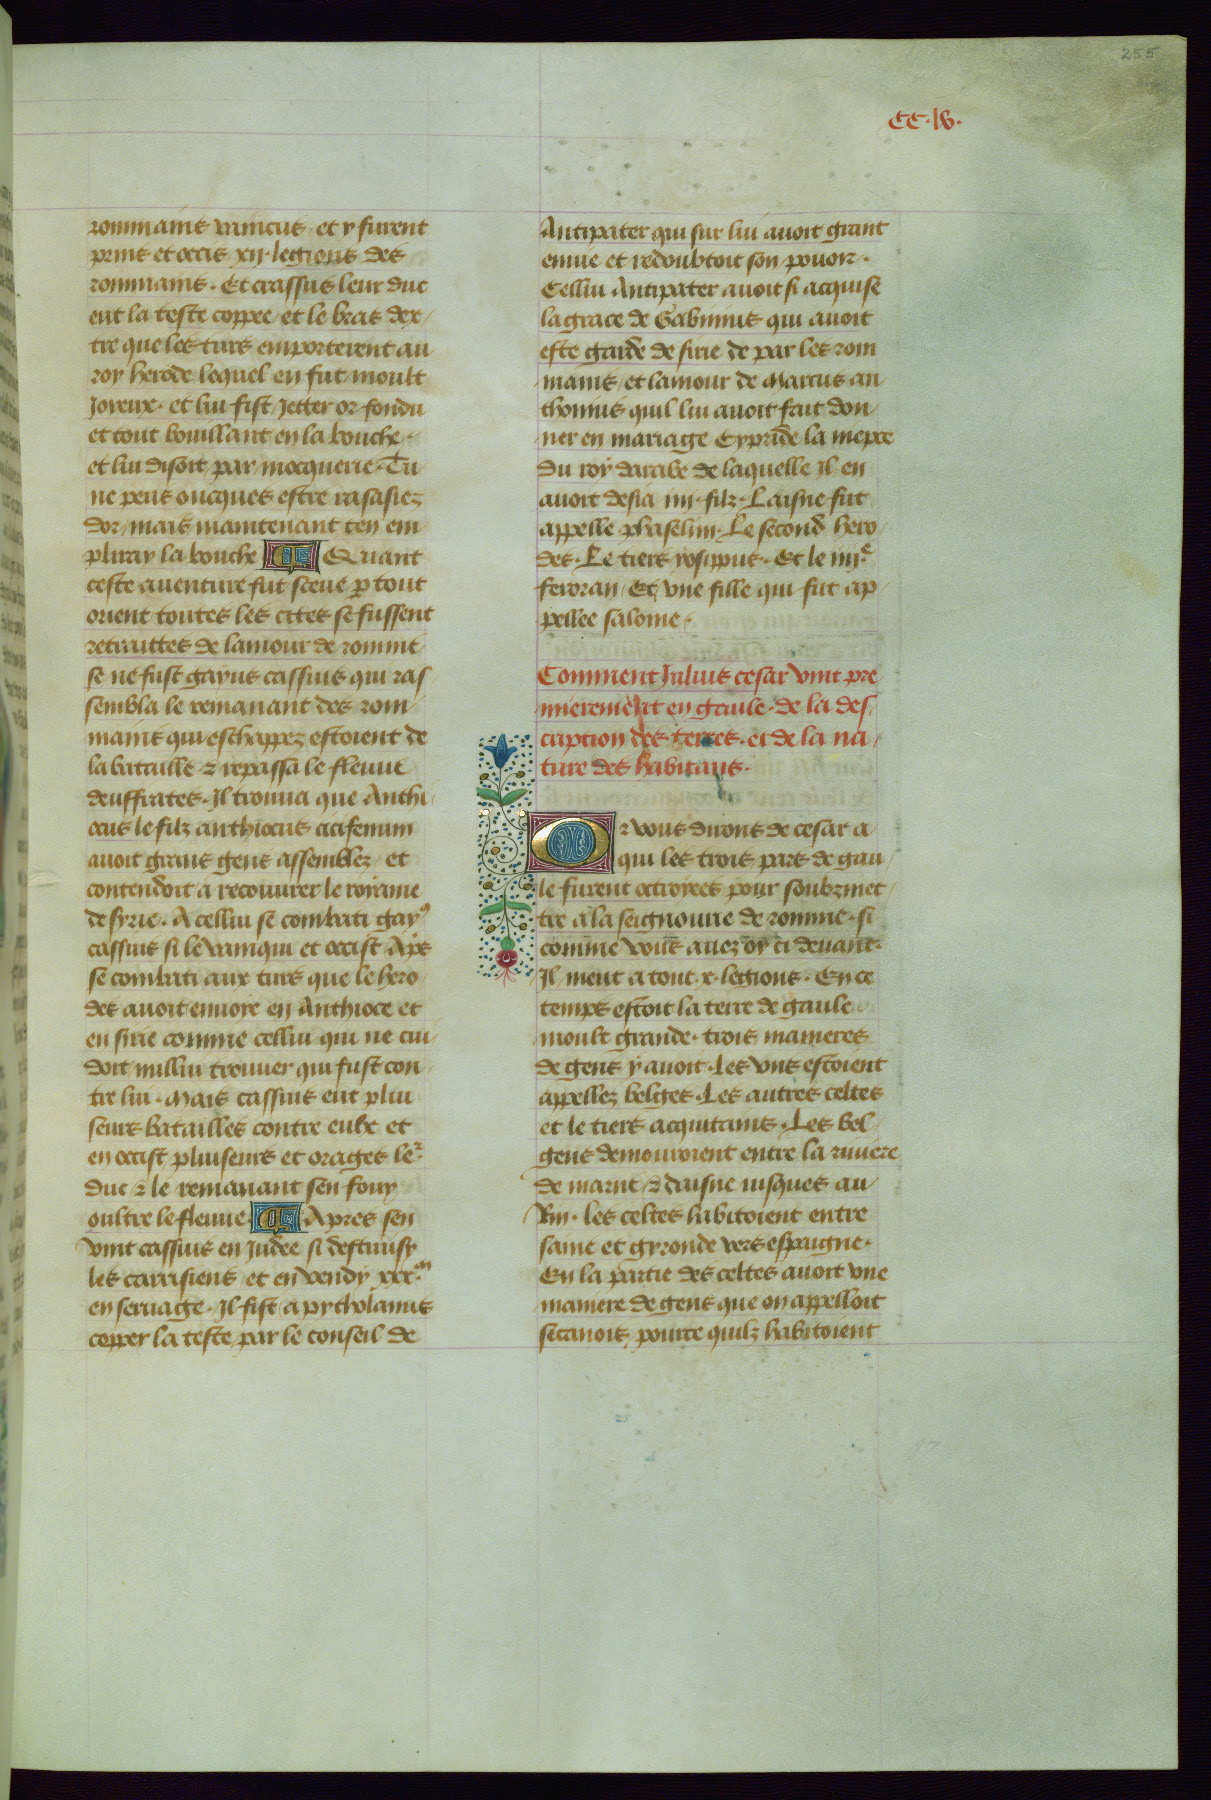 255
CC.lv.
rommains vaincus et y furent
prins et occis xij. legions des
rommains. Et crassus leur duc
eut la teste coppee et le bras dex
tre que les turs emporterent au
roy herode lequel en fut moult
Joyeux. et lui fist Jetter or fondu
et tout bouillant en la bouche.
et lui disoit par mocquerie. Tu
ne peus oncques estre rasasiez
dor, mais maintenant ten em
pliray la bouche Quant
ceste auenture fut sceue p tout
orient toutes les cites se fussent
retraittes de lamour de romme
se ne fust gayus cassius qui ras
sembla le remanant des rom
mains qui eschappez estoient de
la bataille ⁊ repassa le fleuue
deuffrates. Il trouua que Anthi
ocus le filz anthiocus cicisenum
auoit grans gens assemblez et
contendoit a recouurer le royame
de syrie. A cellui se combati gayꝰ
cassius si le vainqui et occist Apꝭ
se combati aux turs que le hero
des auoit enuoye en Anthioce et
en sirie comme cellui qui ne cui
doit nulluy trouuer qui fust con
tre lui. Mais cassius eut plui
seurs batailles contre eulx et
en occist pluiseurs et orages leʳ
duc ⁊ le remanant sen fouy
oultre le fleuue. Apres sen
vint cassius en Judee si destruisy
les carrisiens et en vendy xxx.ᵐ
en seruage. Il fist a pytholamus
copper la teste par le conseil de
Antipater qui sur lui auoit grant
enuie et redoubtoit son pouoir.
Cellui Antipater auoit si acquise
la grace de Gabinius qui auoit
este garde de sirie de par les rom
mains et lamour de Marcus an
thonius quil lui auoit fait don
ner en mariage Cypride la niepce
du roy darabe de laquelle Il en
auoit desia iiij. filz. Laisne fut
appelle phaselun. Le second hero
des. Le tiers yosippus. Et le iiij.ᵉ
feroran Et vne fille qui fut ap
pellee salome.
Comment Julius cesar vint pre
mierement en gaule. de la des
cription des terres. et de la na
ture des habitans.
O ⁊ vous dirons de cesar a
qui les trois pars de gau
le furent octroyees pour soubzmet
tre a la seignourie de romme. si
comme vous auez oy ci deuant.
Il ment a tout .x. legions. En ce
temps estoit la terre de gaule
moult grande. trois manieres
de gens y auoit. Les vns estoient
appellez belges. Les autres celtes
et le tiers acquitains. Les bel
gens demouroient entre la riuiere
de marne ⁊ daisne iusques au
Rin. les celtes habitoient entre
saine et gyronde vers espaigne.
En la partie des celtes auoit vne
maniere de gens que on appelloit
secanois, pource quilz habitoient